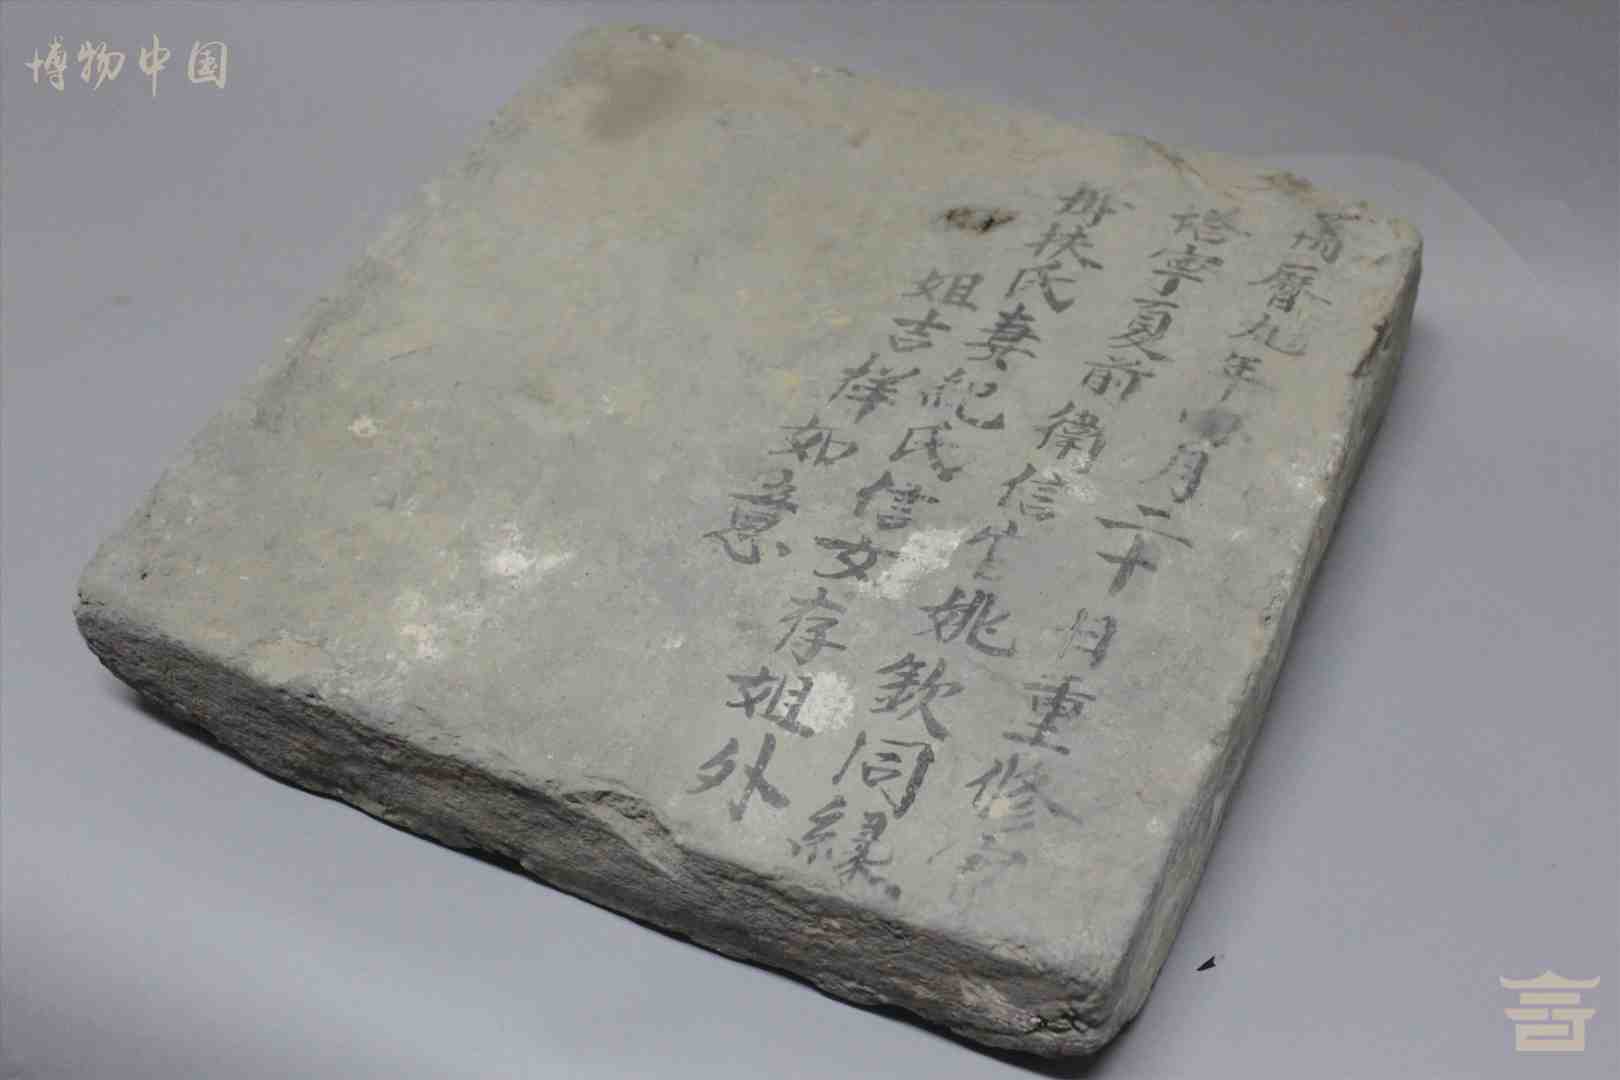 博物中国
萬曆九年四月二十日重修
塔寧夏前衛信生姚欽同緣
扶氏妻紀氏信女存姐外
姐吉样如意